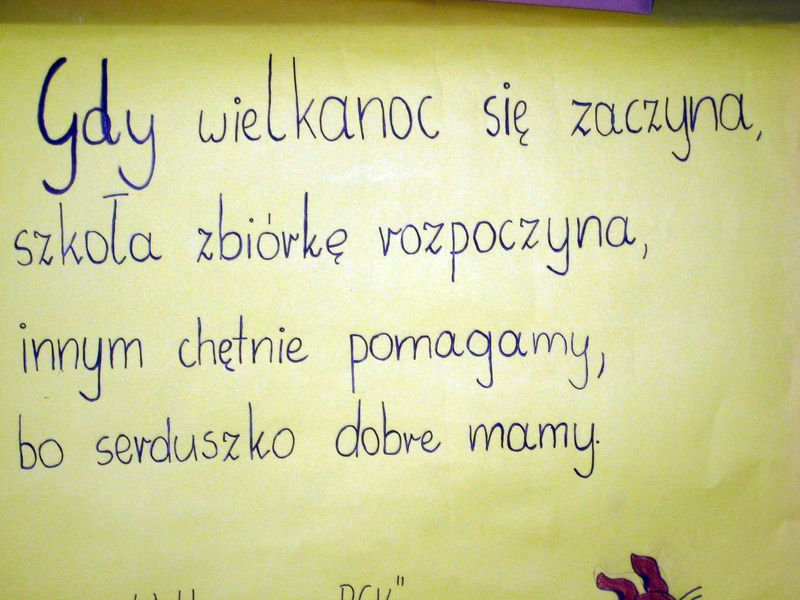 Gdy wielkanoc się zaczyna,
szkoła zbiórkę rozpoczyna,
innym chętnie pomagamy,
bo serduszko dobre mamy.
PCK"